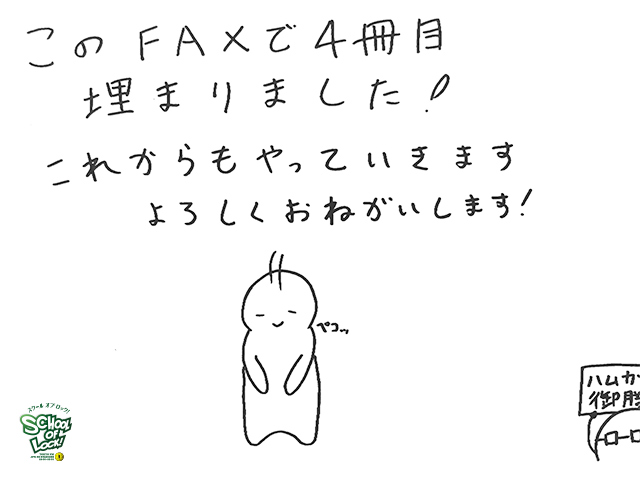 このFAXで4冊目
埋まりました!
これからもやっていきます
よろしくおねがいします!
ペコッ
ハムカ
御勝
スクール オブ ロック!
SCHOOL
OF
LOCK!